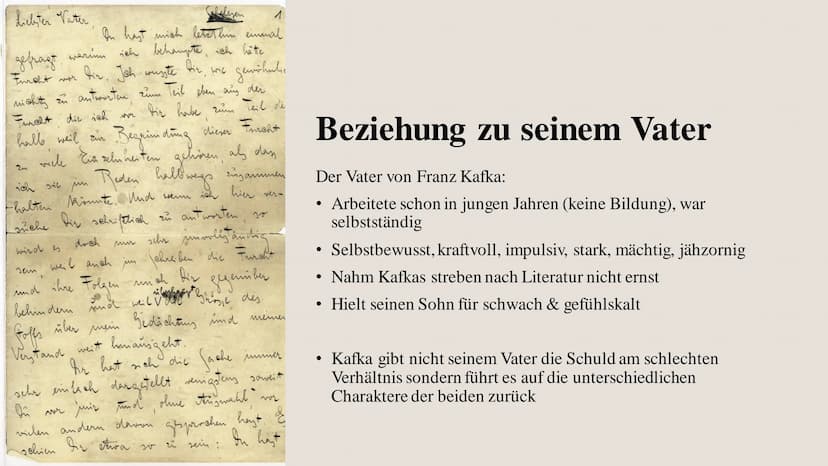 Schelesen 1
Liebster Vater,
Du hast mich letzthin einmal
gefragt, warum ich behaupte, ich hätte
Furcht vor Dir. Ich wusste Dir, wie gewöhnlich,
nichts zu antworten, zum Teil eben aus der
Furcht, die ich vor Dir habe, zum Teil des
halb, weil zur Begründung dieser Furcht
zu viele Einzelnheiten gehören, als dass
ich sie im Reden halbwegs zusammen
halten könnte. Und wenn ich hier ver-
suche Dir schriftlich zu antworten, so
wird es doch nur sehr unvollständig
sein, weil auch im Schreiben die Furcht
und ihre Folgen mich Dir gegenüber
behindern und weil die Grösse des
Stoffs über mein Gedächtnis und meinen
Verstand weit hinausgeht.
Dir hat sich die Sache immer
sehr einfach dargestellt, wenigstens soweit
Du vor mir und, ohne Auswahl, vor
vielen andern davon gesprochen hast. Es
schien Dir etwa so zu sein: Du hast
Beziehung zu seinem Vater
Der Vater von Franz Kafka:
• Arbeitete schon in jungen Jahren (keine Bildung), war
selbstständig
• Selbstbewusst, kraftvoll, impulsiv, stark, mächtig, jähzornig
• Nahm Kafkas streben nach Literatur nicht ernst
• Hielt seinen Sohn für schwach & gefühlskalt
• Kafka gibt nicht seinem Vater die Schuld am schlechten
Verhältnis sondern führt es auf die unterschiedlichen
Charaktere der beiden zurück